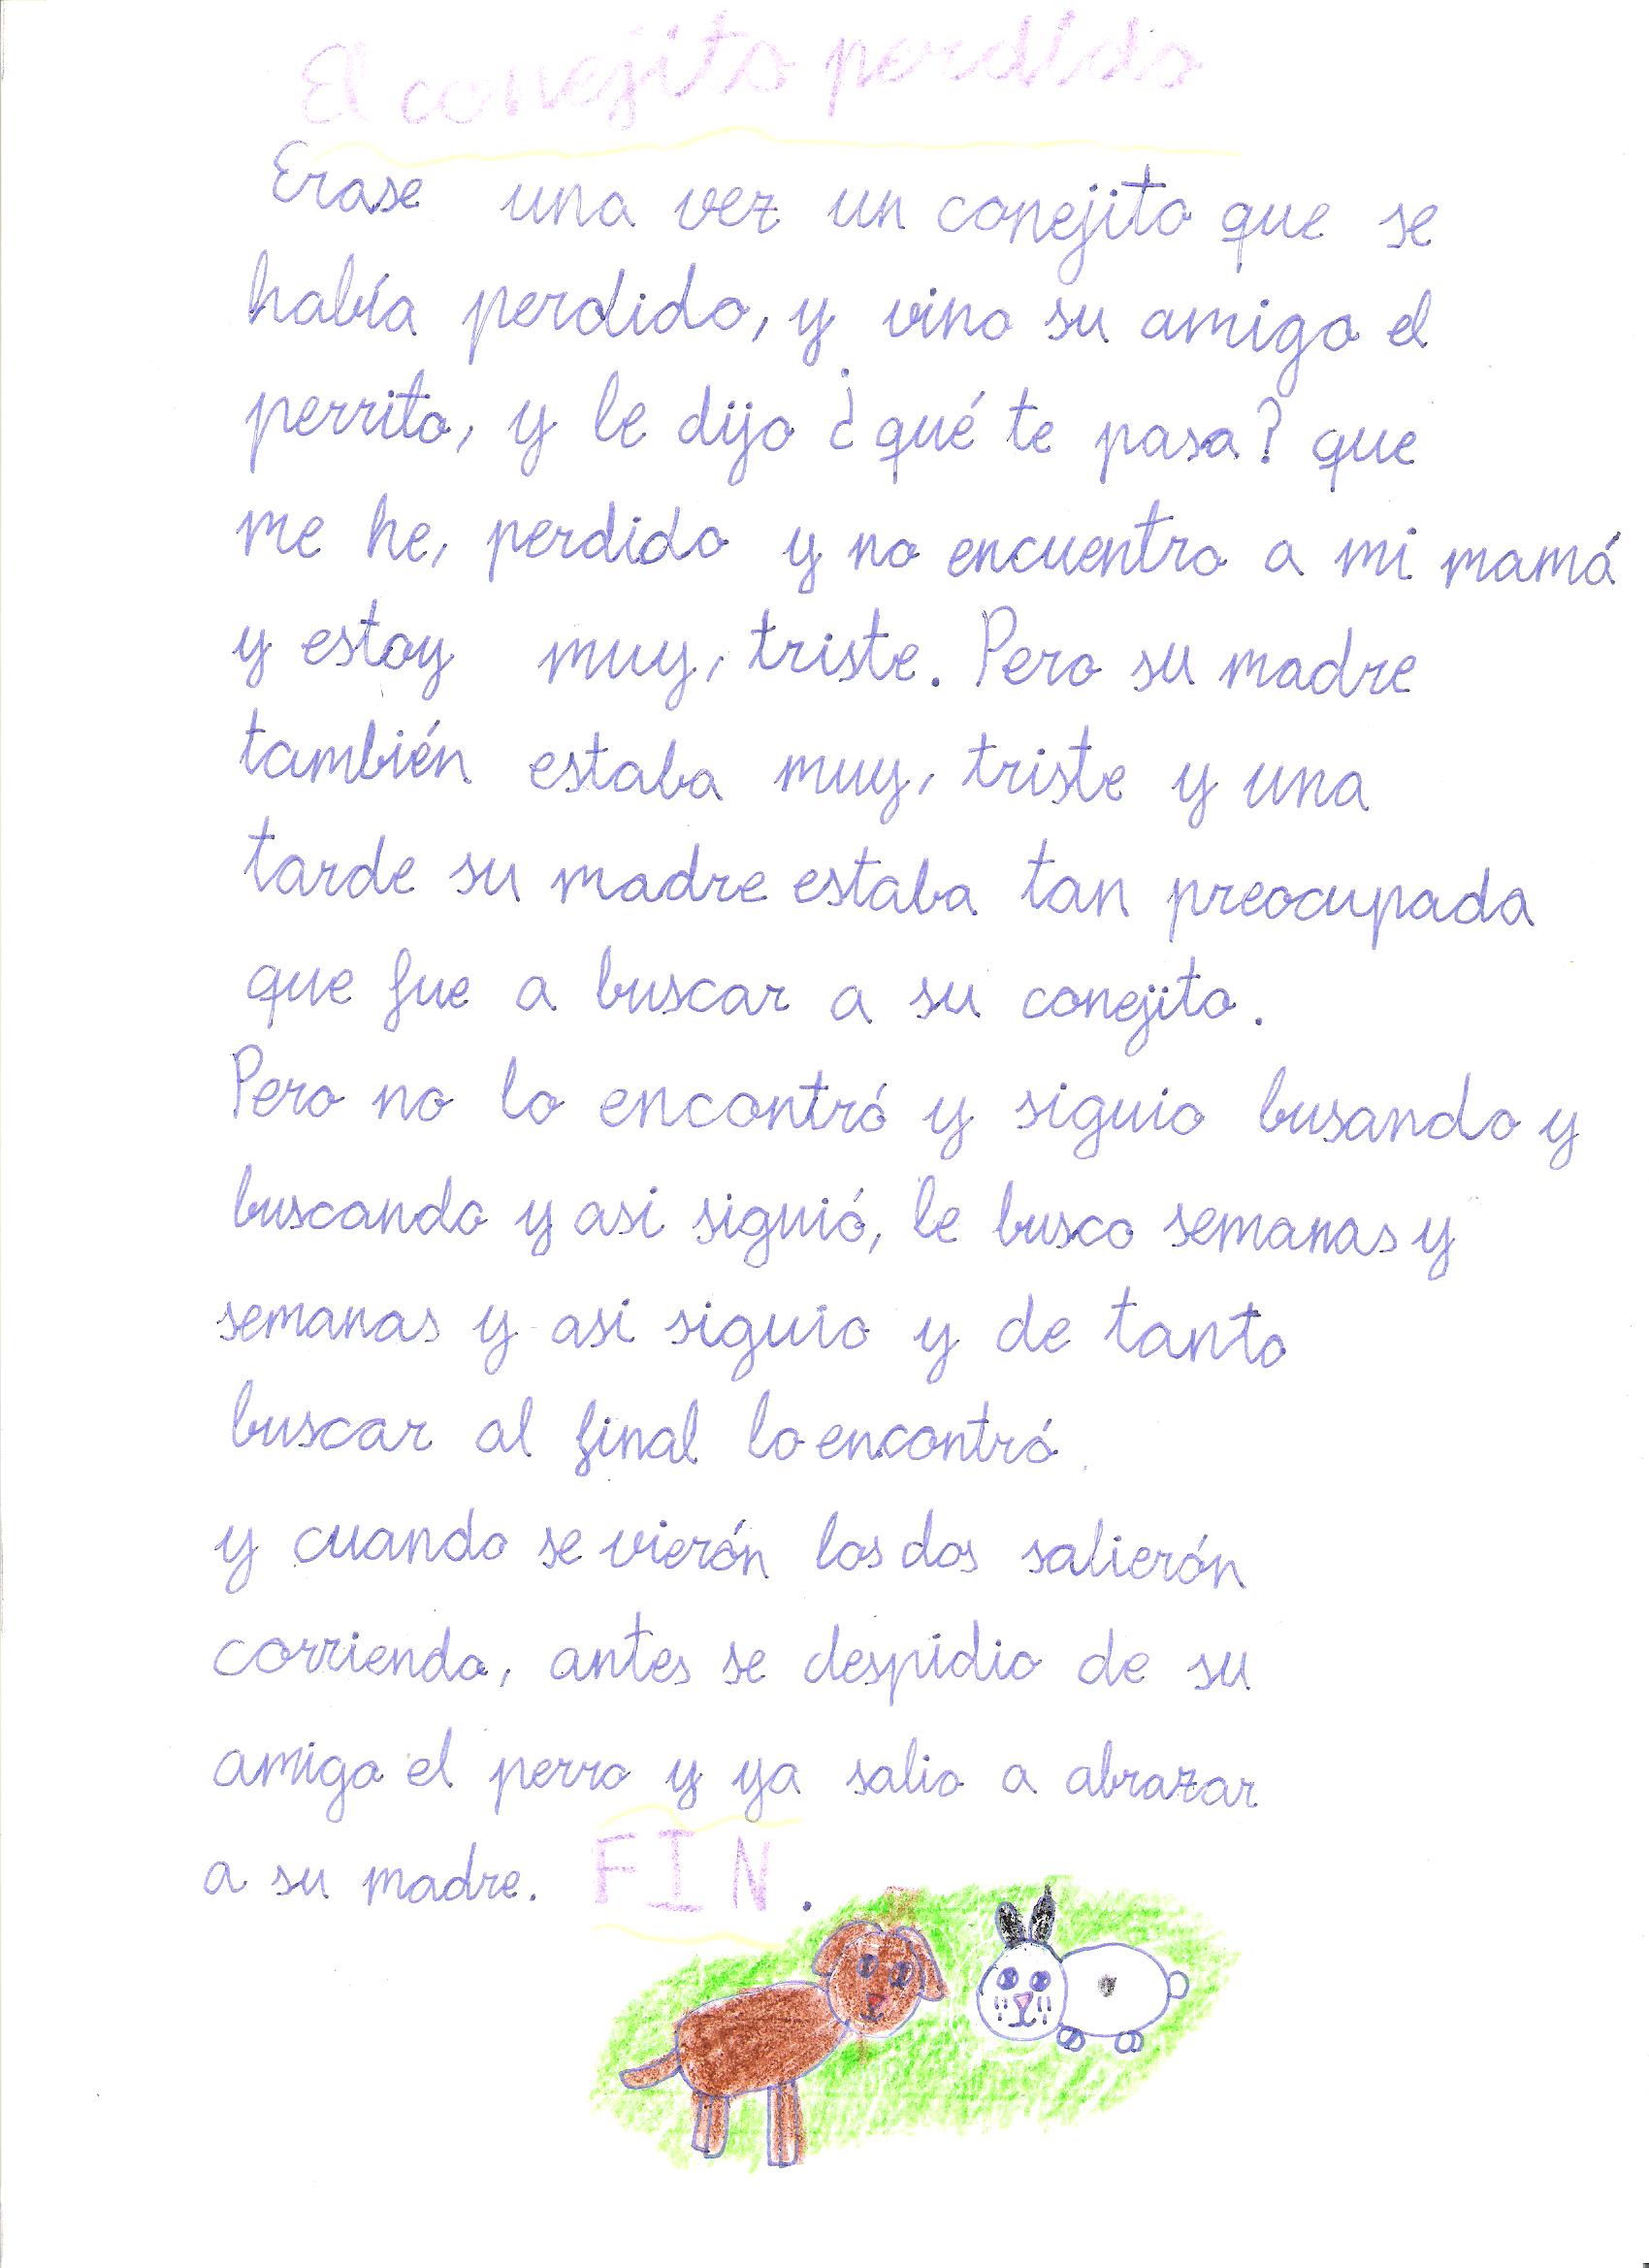 El conejito perdido
Erase una vez un conejito que se
había perdido, y vino su amigo el
perrito, y le dijo ¿qué te pasa? que
me he, perdido y no encuentro a mi mamá
y estoy muy, triste. Pero su madre
también estaba muy, triste y una
tarde su madre estaba tan preocupada
que fue a buscar a su conejito.
Pero no lo encontró y siguio busando y
buscando y asi siguió, le busco semanas y
semanas y asi siguio y de tanto
buscar al final lo encontró.
y cuando se vierón los dos salierón
corriendo, antes se despidio de su
amigo el perro y ya salio a abrazar
a su madre. FIN.